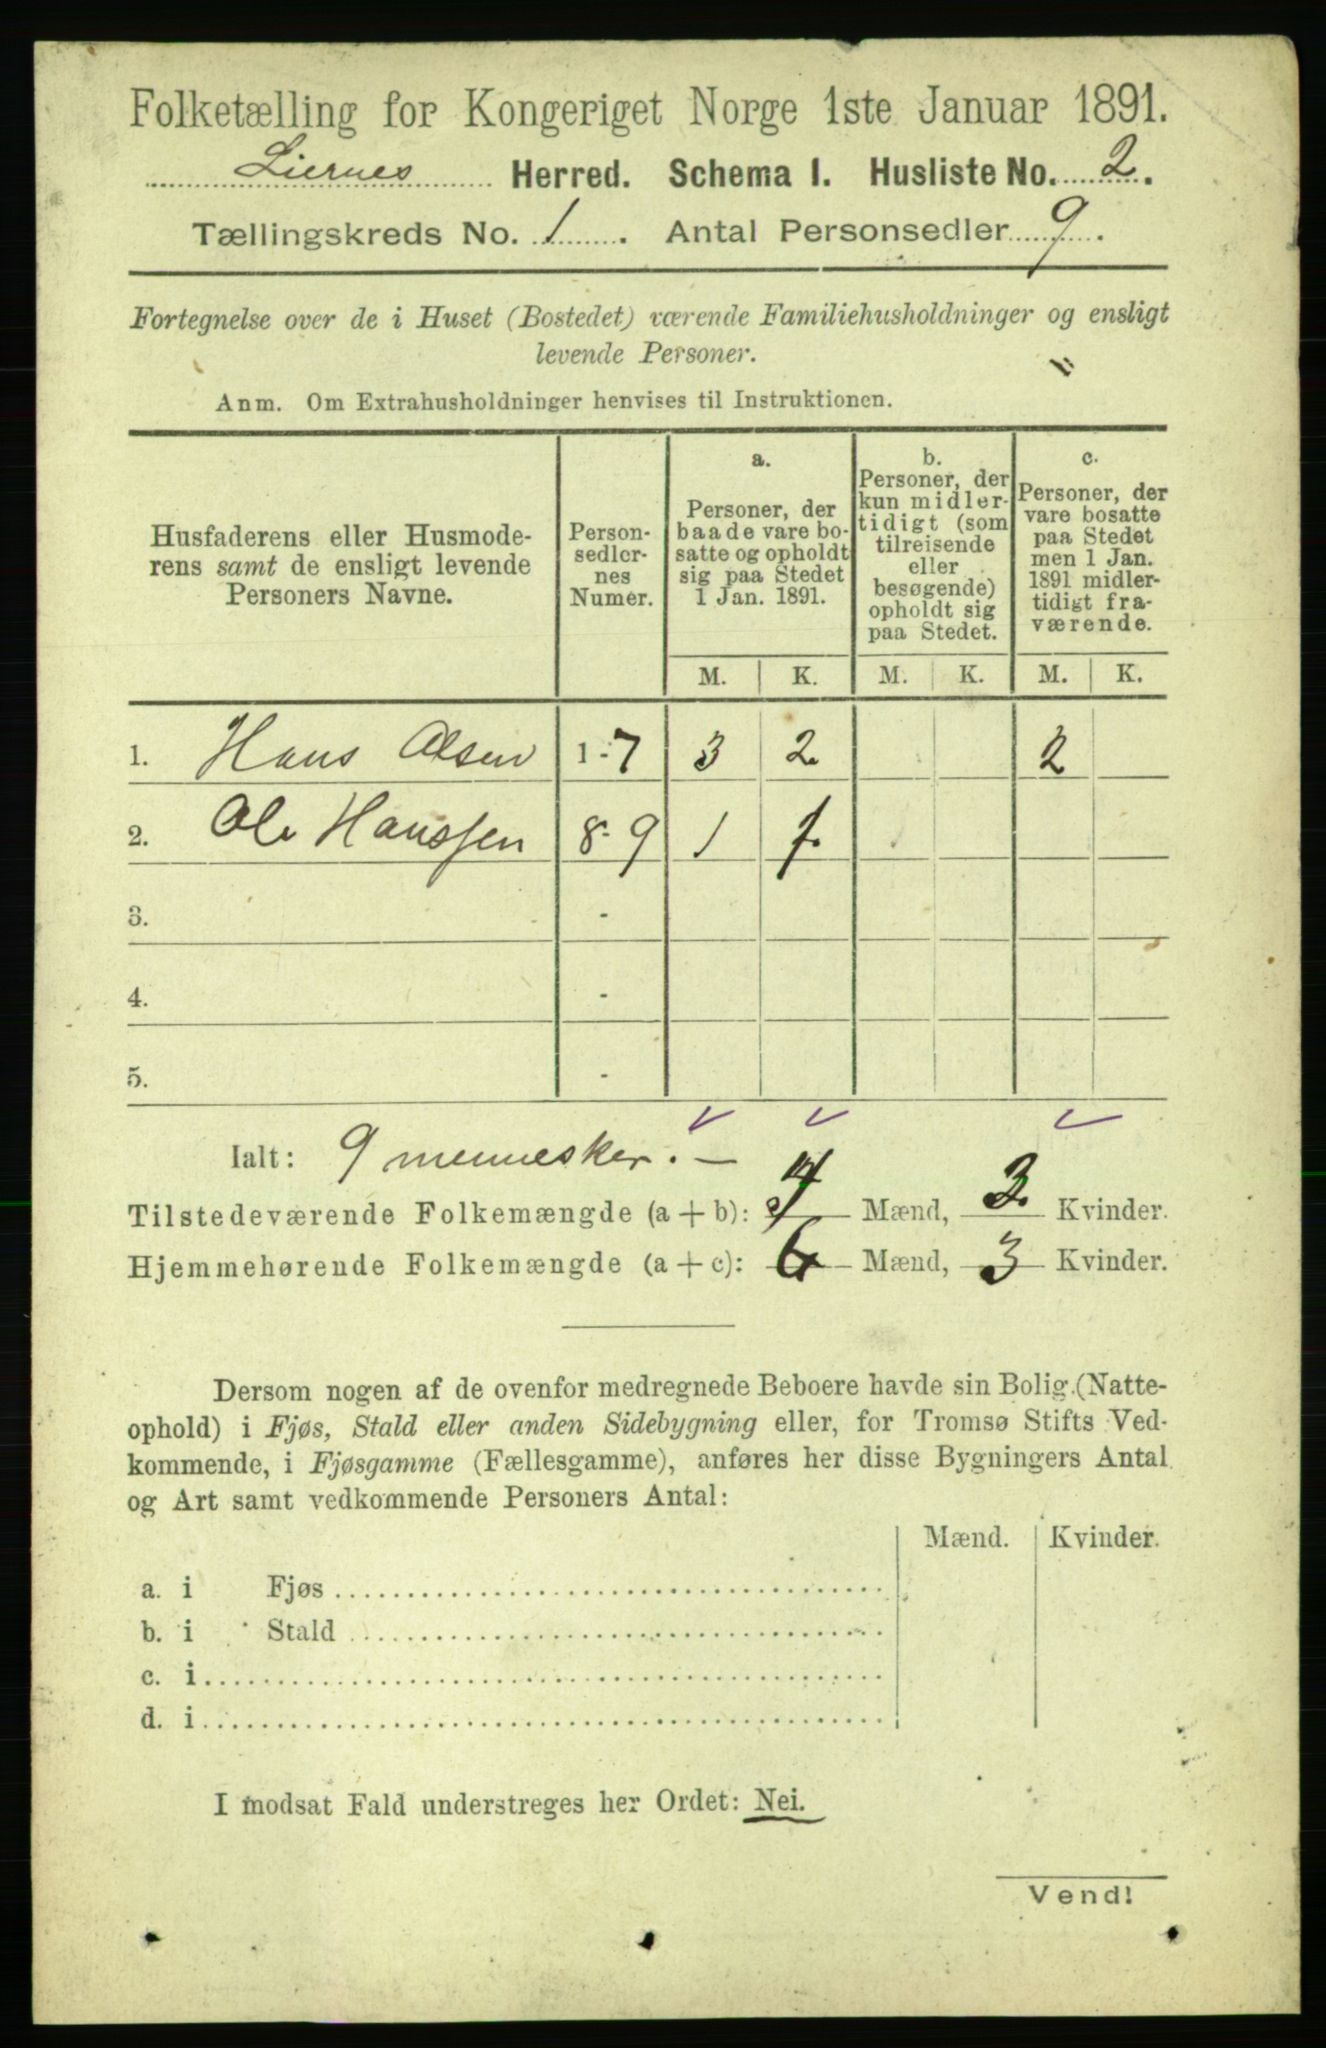 Folketælling for Kongeriget Norge 1ste Januar 1891.
Liernes Herred. Schema I. Husliste No. 2.
Tællingskreds No. 1. Antal Personsedler 9.
Fortegnelse over de i Huset (Bostedet) værende Familiehusholdninger og ensligt
levende Personer.
Anm. Om Extrahusholdninger henvises til Instruktionen.
Husfaderens eller Husmode-
rens samt de ensligt levende
Personers Navne.
Person-
sedler-
nes
Numer.
a.
Personer, der
baade vare bo-
satte og opholdt
sig paa Stedet
1 Jan. 1891.
b.
Personer, der
kun midler-
tidigt (som
tilreisende
eller
besøgende)
opholdt sig
paa Stedet.
c.
Personer, der
vare bosatte
paa Stedet
men 1 Jan.
1891 midler-
tidigt fra-
værende.
M. K. M. K. M. K.
1. Hans Olsen 1-7 3 2 2
2. Ole Hanssen 8-9 1 1
3. -
4. -
5. -
Ialt: 9 mennesker. —
Tilstedeværende Folkemængde (a + b): 4 Mænd, 3 Kvinder.
Hjemmehørende Folkemængde (a + c): 6 Mænd, 3 Kvinder.
Dersom nogen af de ovenfor medregnede Beboere havde sin Bolig (Natte-
ophold) i Fjøs, Stald eller anden Sidebygning eller, for Tromsø Stifts Ved-
kommende, i Fjøsgamme (Fællesgamme), anføres her disse Bygningers Antal
og Art samt vedkommende Personers Antal:
Mænd. Kvinder.
a. i Fjøs
b. i Stald
c. i
d. i
I modsat Fald understreges her Ordet: Nei.
Vend!